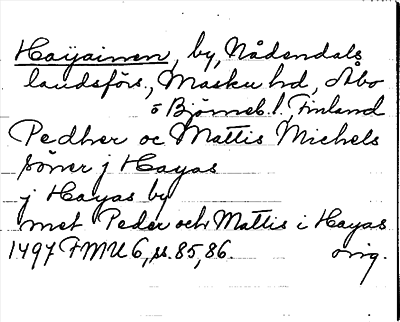 Haijainen, by, Nådendals
landsförs., Masku hd, Åbo
o Björneb. l., Finland
Pedher oc Mattis Michels
söner j Hayas
j Hayas by
met Peder och Mattis i Hayas
1497 FMU 6, ss. 85, 86. orig.